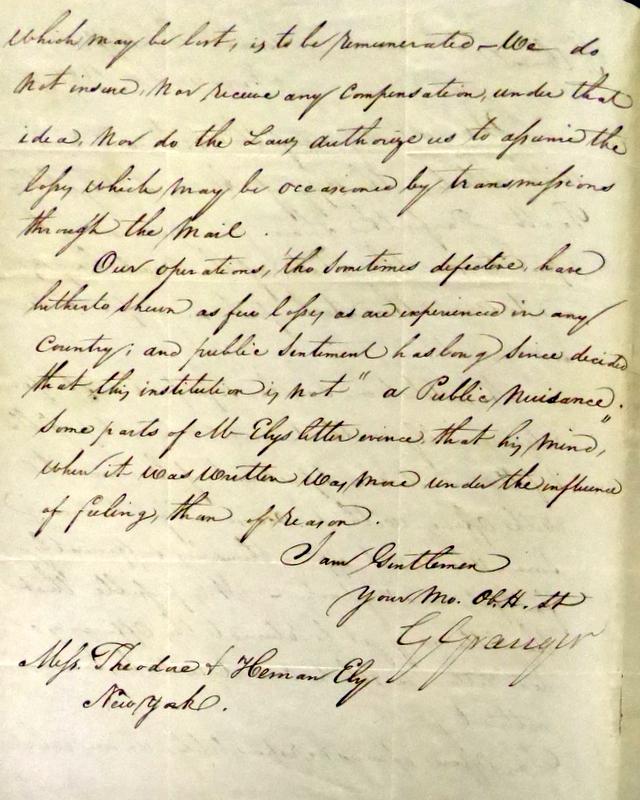 which may be lost, is to be remunerated – We do
not insure, nor receive any compensation, under that
idea, nor do the Laws authorize us to assume the
losses which may be occasioned by transmissions
through the Mail.
Our operations, 'tho sometimes defective, have
hitherto shewn as few losses as are experienced in any
Country; and public sentiment has long since decided
that this institution is not "a Public Nuisance."
Some parts of Mr Elys letter evince that his mind,
when it was written was more under the influence
of feeling, than of reason.
I am Gentlemen
Your Mo. Ob. H. St
G Granger
Mess. Theodore & Heman Ely
New York.